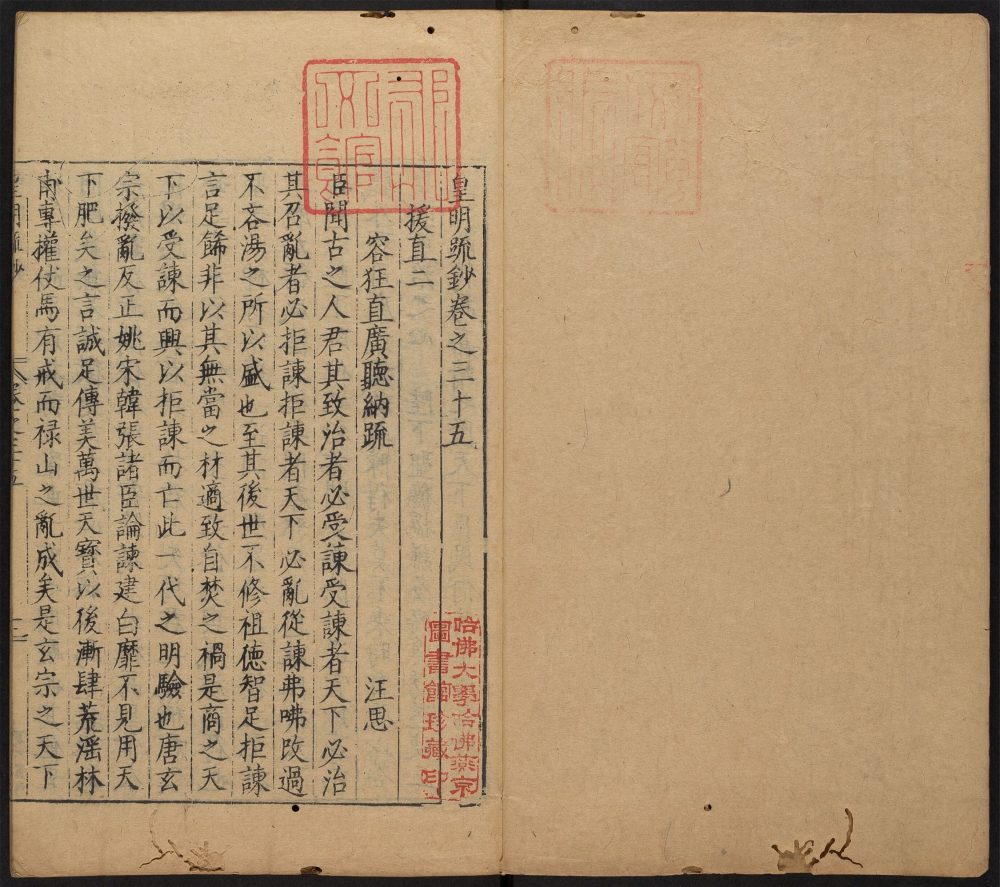 皇明疏鈔卷之三十五
援直二
容狂直廣聽納疏 汪思
臣聞古之人君其致治者必受諫受諫者天下必治
其召亂者必拒諫拒諫者天下必亂從諫弗咈改過
不吝湯之所以盛也至其後世不修祖德智足拒諫
言足餙非以其無當之材適致自焚之禍是商之天
下以受諫而興以拒諫而亡此一代之明驗也唐玄
宗撥亂反正姚宋韓張諸臣論諫建白靡不見用天
下肥矣之言誠足傳美萬世天寳以後漸肆荒滛林
甫專權仗馬有戒而禄山之亂成矣是玄宗之天下
皇明疏鈔
卷之三十五
一
哈佛大學哈佛燕京
圖書館珍藏印